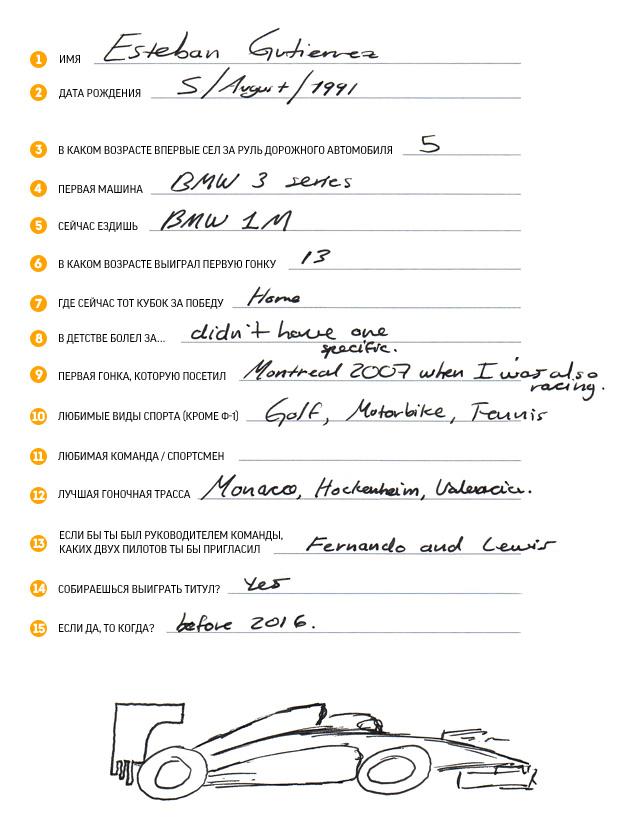 1 ИМЯ Esteban Gutierrez
2 ДАТА РОЖДЕНИЯ 5/August/1991
3 В КАКОМ ВОЗРАСТЕ ВПЕРВЫЕ СЕЛ ЗА РУЛЬ ДОРОЖНОГО АВТОМОБИЛЯ 5
4 ПЕРВАЯ МАШИНА BMW 3 series
5 СЕЙЧАС ЕЗДИШЬ BMW 1M
6 В КАКОМ ВОЗРАСТЕ ВЫИГРАЛ ПЕРВУЮ ГОНКУ 13
7 ГДЕ СЕЙЧАС ТОТ КУБОК ЗА ПОБЕДУ Home
8 В ДЕТСТВЕ БОЛЕЛ ЗА... didn't have one
specific.
9 ПЕРВАЯ ГОНКА, КОТОРУЮ ПОСЕТИЛ Montreal 2007 when I was also
racing.
10 ЛЮБИМЫЕ ВИДЫ СПОРТА (КРОМЕ Ф-1) Golf, Motorbike, Tennis
11 ЛЮБИМАЯ КОМАНДА / СПОРТСМЕН
12 ЛУЧШАЯ ГОНОЧНАЯ ТРАССА Monaco, Hockenheim, Valencia.
13 ЕСЛИ БЫ ТЫ БЫЛ РУКОВОДИТЕЛЕМ КОМАНДЫ,
КАКИХ ДВУХ ПИЛОТОВ ТЫ БЫ ПРИГЛАСИЛ Fernando and Lewis
14 СОБИРАЕШЬСЯ ВЫИГРАТЬ ТИТУЛ? Yes
15 ЕСЛИ ДА, ТО КОГДА? before 2016.